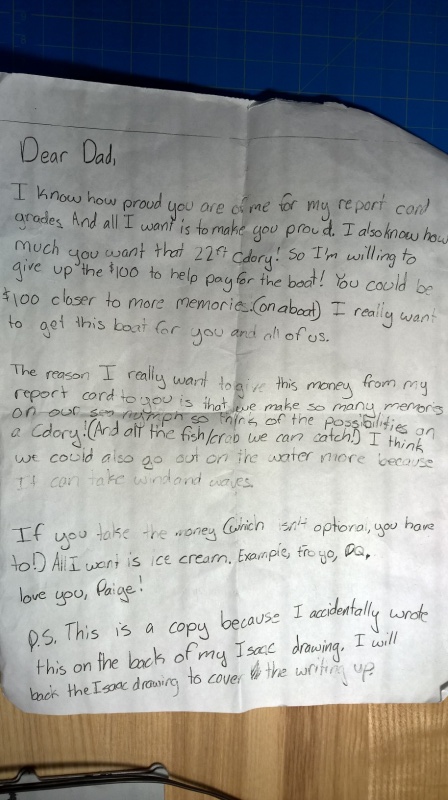 Dear Dad,
I know how proud you are of me for my report card
grades. And all I want is to make you proud. I also know how
much you want that 22ft Cdory! So I'm willing to
give up the $100 to help pay for the boat! You could be
$100 closer to more memories.(on a boat) I really want
to get this boat for you and all of us.
The reason I really want to give this money from my
report card to you is that we make so many memories
on our sea nymph so think of the possibilities on
a Cdory!(And all the fish/crab we can catch!) I think
we could also go out on the water more because
it can take wind and waves.
If you take the money (which isn't optional, you have
to!) All I want is ice cream. Example, froyo, DQ.
love you, Paige!
P.S. This is a copy because I accidentally wrote
this on the back of my Isaac drawing. I will
back the Isaac drawing to cover the writing up.